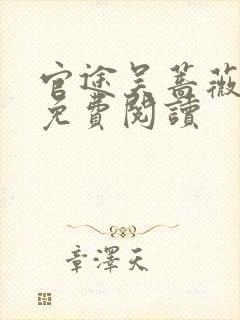 官途吴蔷薇
免費閱讀
章澤天